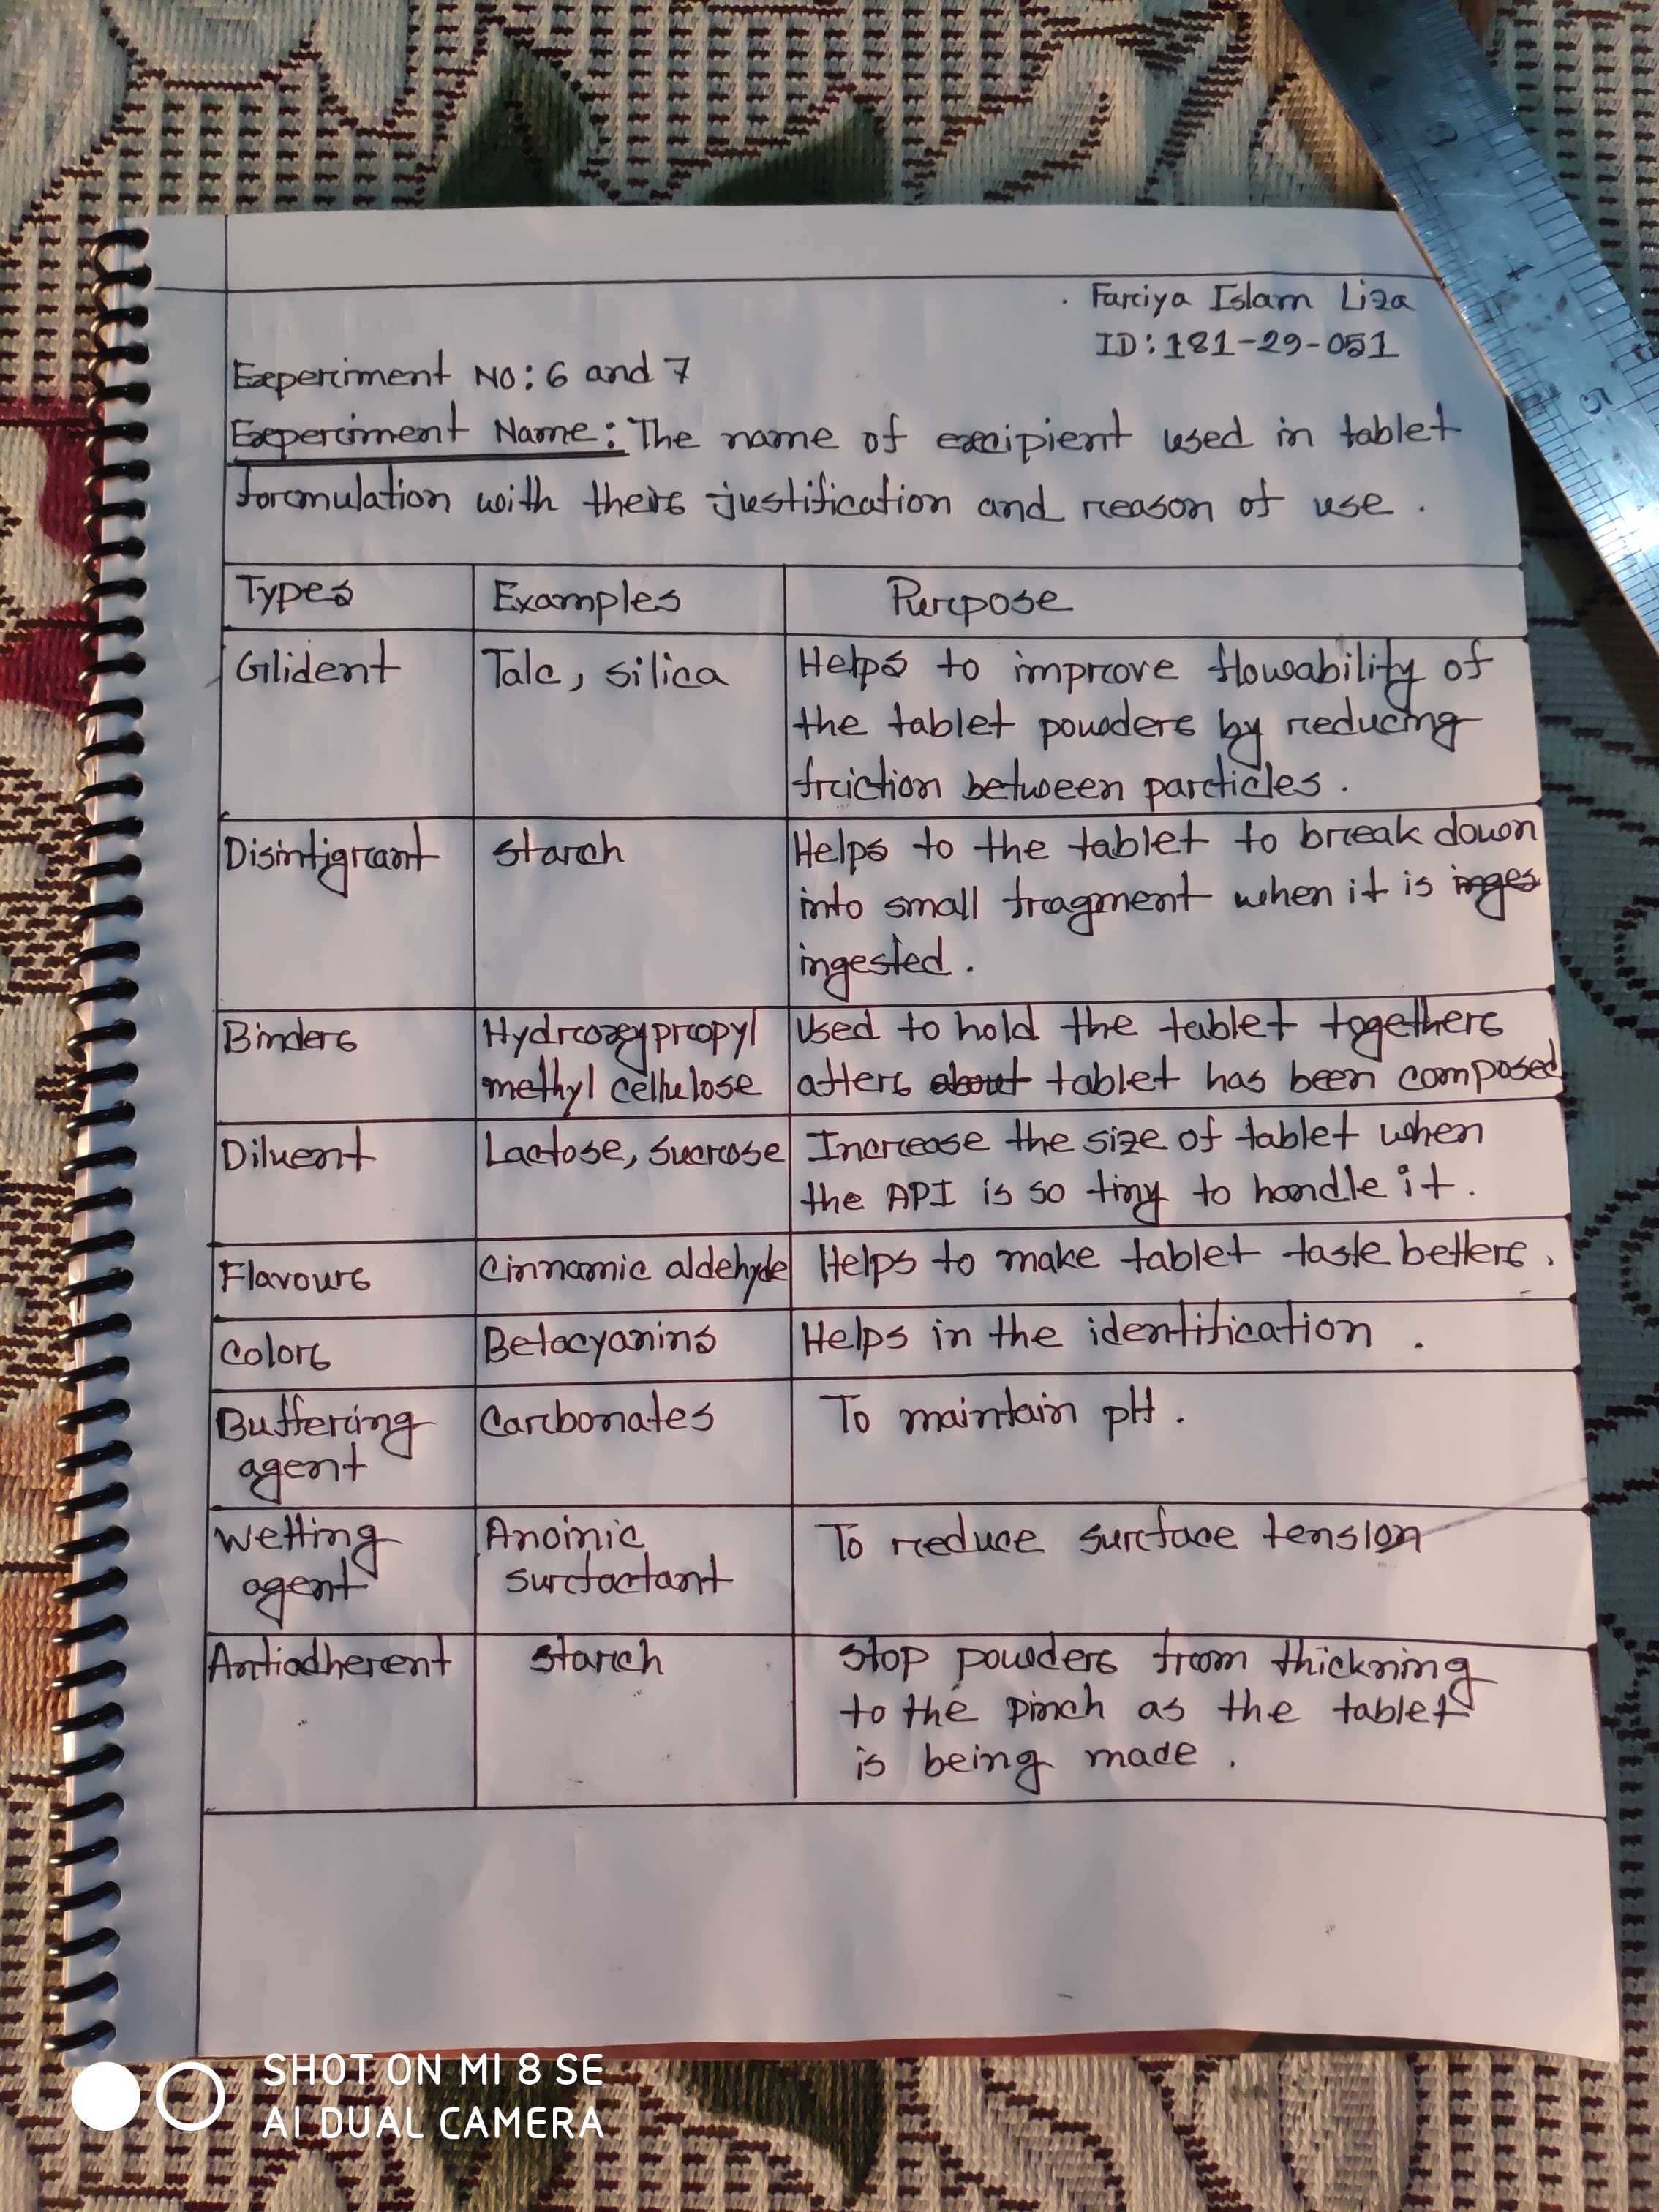 Fariya Islam Liza
ID: 181-29-051
Experiment No: 6 and 7
Experiment Name: The name of excipient used in tablet
formulation with their justification and reason of use.
Types Examples Purpose
Glident Talc, silica Helps to improve flowability of
the tablet powders by reducing
friction between particles.
Disintigrant starch Helps to the tablet to break down
into small fragment when it is inges
ingested.
Binders Hydroxypropyl Used to hold the tablet together
methyl cellulose after about tablet has been composed
Diluent Lactose, sucrose Increase the size of tablet when
the API is so tiny to handle it.
Flavours Cinnamic aldehyde Helps to make tablet taste better.
Color Betacyanins Helps in the identification.
Buffering Carbonates To maintain pH.
agent
Wetting Anoinic To reduce surface tension
agent surfactant
Antiadherent starch stop powders from thickning
to the pinch as the tablet
is being made.
3
4
5
SHOT ON MI 8 SE
AI DUAL CAMERA